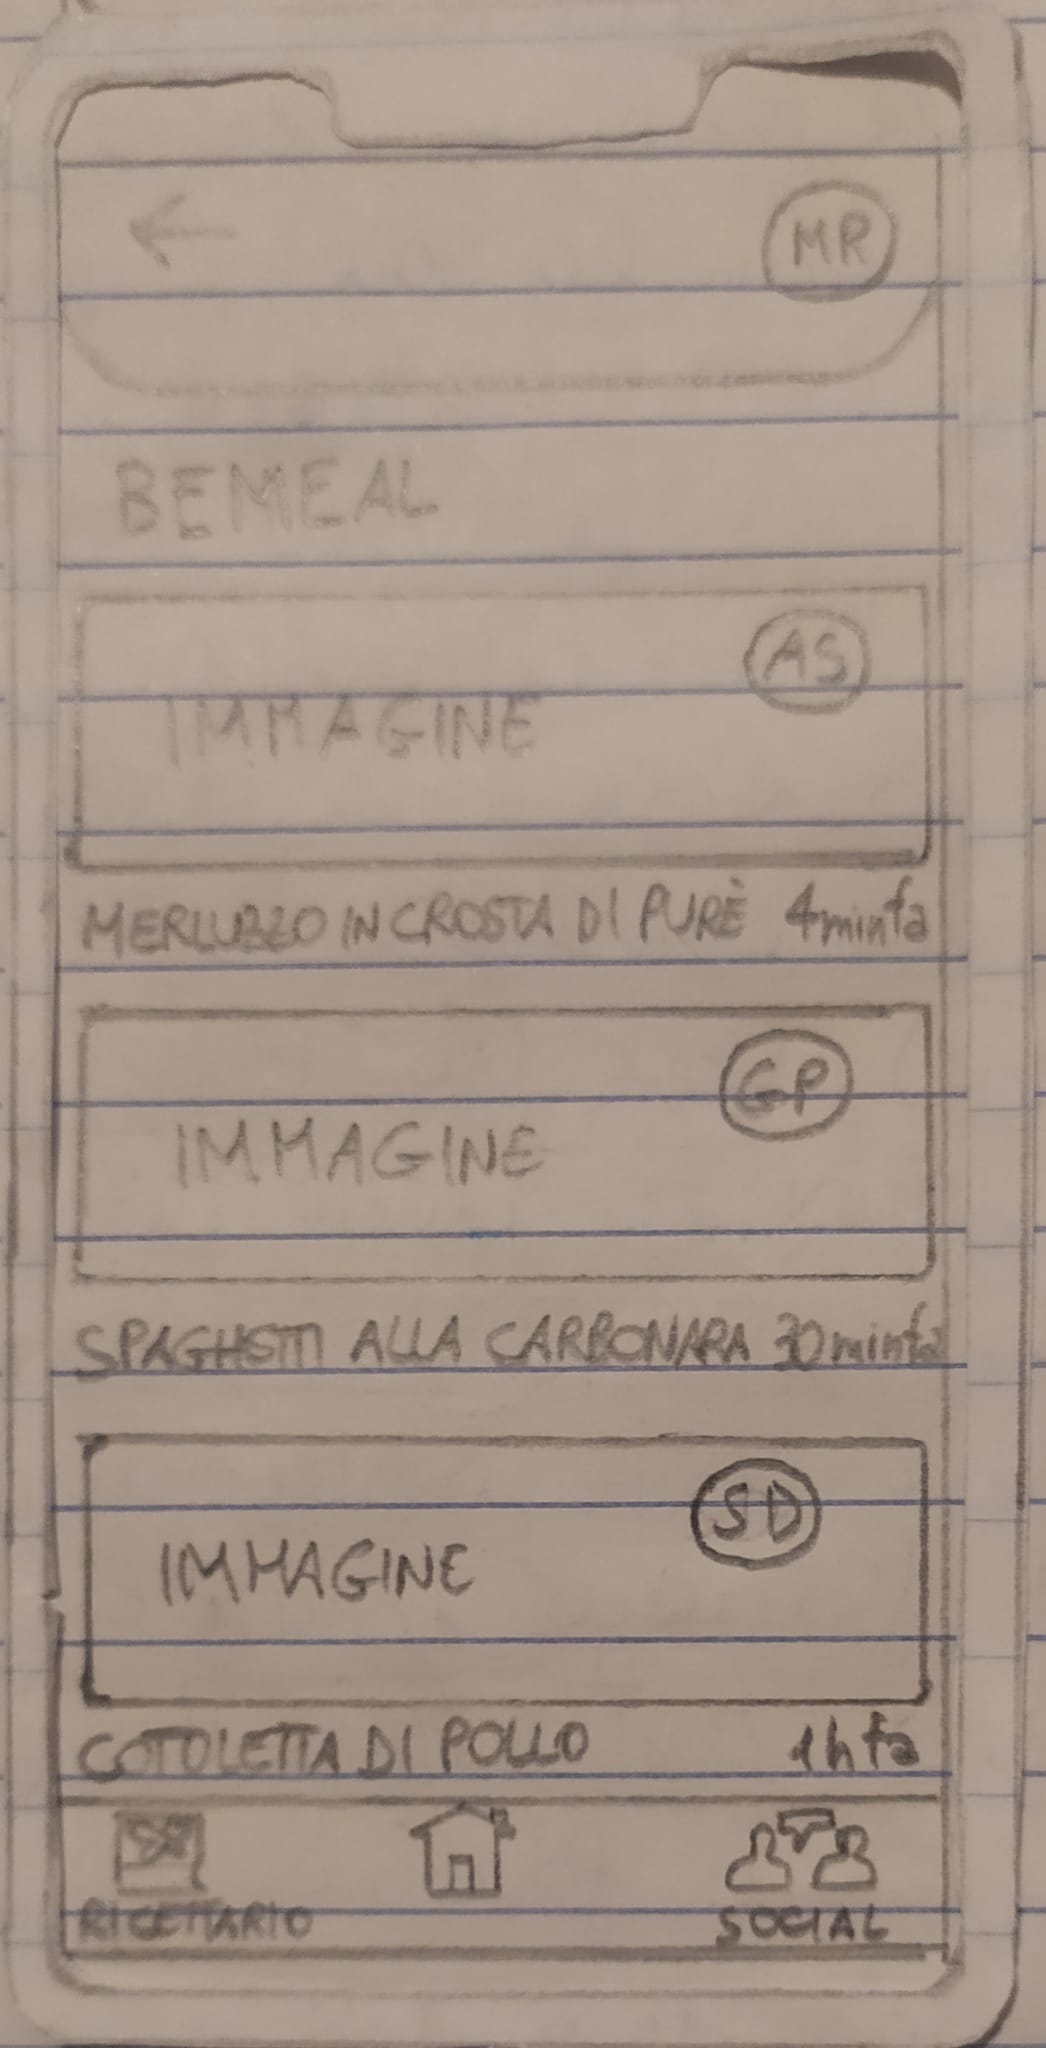 ←
MR
BEMEAL
AS
IMMAGINE
MERLUZZO IN CROSTA DI PURÈ 4 min fa
GP
IMMAGINE
SPAGHETTI ALLA CARBONARA 30 min fa
SD
IMMAGINE
COTOLETTA DI POLLO 1h fa
RICETTARIO
SOCIAL